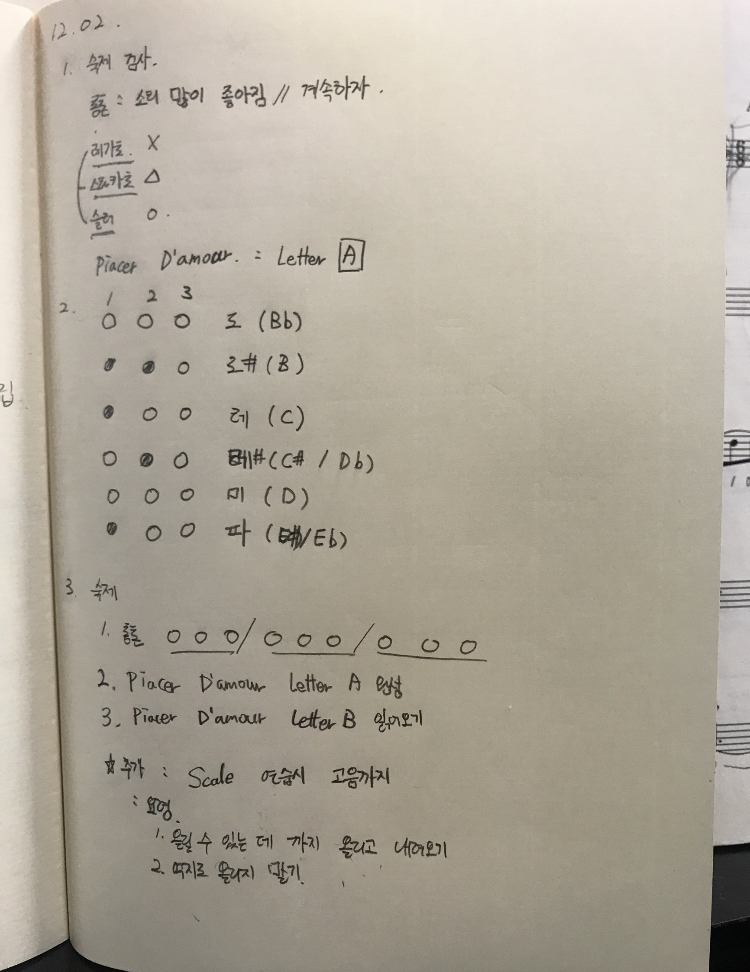 12.02.
1. 숙제 검사.
롱톤 : 소리 많이 좋아짐 // 계속하자.
레가토. X
스타카토 △
슬러 O.
Piacer D'amour. : Letter A
1 2 3
2. ○ ○ ○ 도 (Bb)
● ● ○ 도# (B)
● ○ ○ 레 (C)
○ ● ○ 레# (C# / Db)
○ ○ ○ 미 (D)
● ○ ○ 파 ( /Eb)
3. 숙제
1. 롱톤 ○ ○ ○ / ○ ○ ○ / ○ ○ ○
2. Piacer D'amour Letter A 완성
3. Piacer D'amour Letter B 읽어오기
☆ 추가 : Scale 연습시 고음까지
: 요령.
1. 올릴 수 있는 데 까지 올리고 내려오기
2. 억지로 올리지 말기.
립